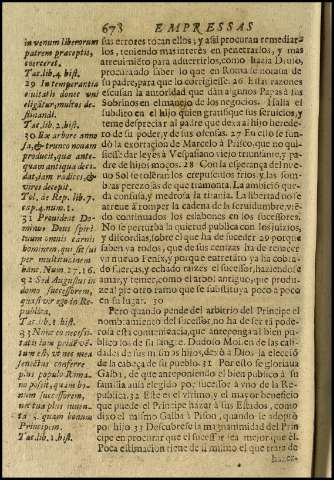 673 EMPRESSAS
in venum liberorum
patrem præceptis,
coerceret.
Tac. lib. 4. hist.
29 In temperantia
civitatis donec vni
eligatur, multos de-
stinandi.
Tac. lib. 2. hist.
30 Ex arbore anno
sa, & trunco nouam
producit, quæ ante-
quam antiqua deci-
dat, jam radices, &
vires decepit.
Tol. de Rep. lib. 7.
cap. 4. num. 1.
31 Prouideat Do-
minus Deus spiri-
tuum omnis carnis
hominem, qui sit su-
per multitudinem
hanc. Num. 27. 16.
32 Sed Augustus in
domo successorem,
quæsivit ego in Re-
publica.
Tac. lib. 1. hist.
33 Nunc eo necessi-
tatis jam
tum est, vt nec mea
senectus conferre
plus populo Roma-
no possit, quam bo-
num successorem,
nec tua plus iuuen-
ta quam bonum
Principem.
Tac. lib. 1. hist.
sus errores tocan ellos, y assi procuran remediar-
los, teniendo mas interés en penetrarlos, y mas
atreuimiẽto para aduertirlos, como hazia Druso,
procurando saber lo que en Roma se notaua de
su padre, para que lo corrigiesse. 26 Estas razones
escusan la autoridad que dàn algunos Papas à sus
Sobrinos en el manejo de los negocios. Halla el
subdito en el hijo quien gratifique sus seruicios, y
teme despreciar al padre que dexa al hijo herede-
ro de su poder, y de sus ofensas. 27 En esto se fun-
dò la exortacion de Marcelo à Prisco, que no qui-
siesse dar leyes à Vespasiano viejo triunfante, y
padre de hijos moços. 28 Con la esperança del nue-
uo Sol se toleran los crepusculos frios, y las som-
bras perezosas de que tramonta. La ambicion que-
da confusa, y medrosa la tirania. La libertad no se
atreue à romper la cadena de la seruidumbre, viẽ-
do continuados los eslabones en los successores.
No se perturba la quietud publica con los juizios,
y discordias, sobre el que ha de suceder 29 porque
saben ya todos, que de sus cenizas ha de renacer
vn nueuo Fenix, y porque entretanto ya ha cobra-
do fuerças, y echado raizes el sucessor, haziendose
amar, y temer, como el arbol antiguo, que produ-
ze al pie otro ramo que se substituya poco a poco
en su lugar. 30
Pero quando pende del arbitrio del Principe el
nombramiento del sucessor, no ha de ser tã pode-
rosa esta conueniencia, que anteponga al bien pu-
blico los de su sangre. Dudoso Moisen de las cali-
dades de sus mismos hijos, dexò a Dios la eleccion
de la cabeça de su pueblo. 31 Por esto se gloriaua
Galba, de que anteponiendo el bien publico à su
familia auia elegido por sucessor à vno de la Re-
publica. 32 Este es el vltimo, y el mayor beneficio
que puede el Principe hazer à sus Estados, como
dixo el mismo Galba à Pison, quando le adoptò
por hijo 33 Descubrese la magnanimidad del Prin
cipe en procurar que el sucessor sea mejor que èl.
Poca estimacion tiene de si mismo el que trata de
hazer-